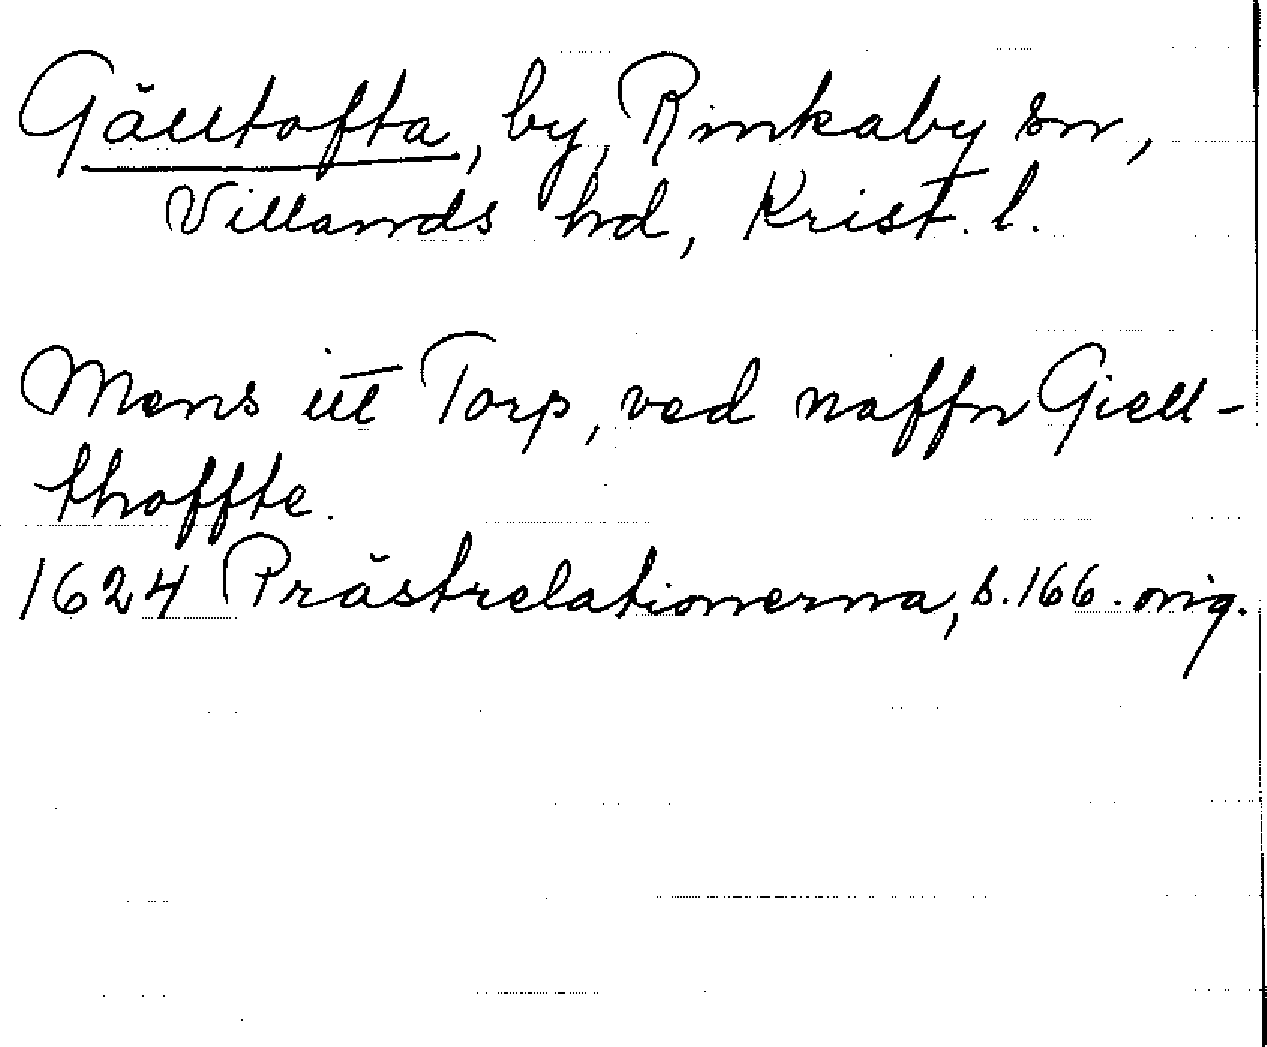 Gälltofta, by, Rinkaby sn,
Villands hd, Krist. l.
Mens itt Torp, ved naffn Giell-
thoffte.
1624 Prästrelationerna, s. 166. orig.